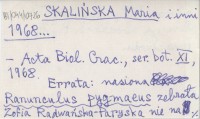 SKALIŃSKA Maria i inni
1968...
- Acta Biol. Crac., ser. bot. XI,
1968.
Errata: nasiona
Ranunculus pygmaeus zebrała
Zofia Radwańska-Paryska nie na